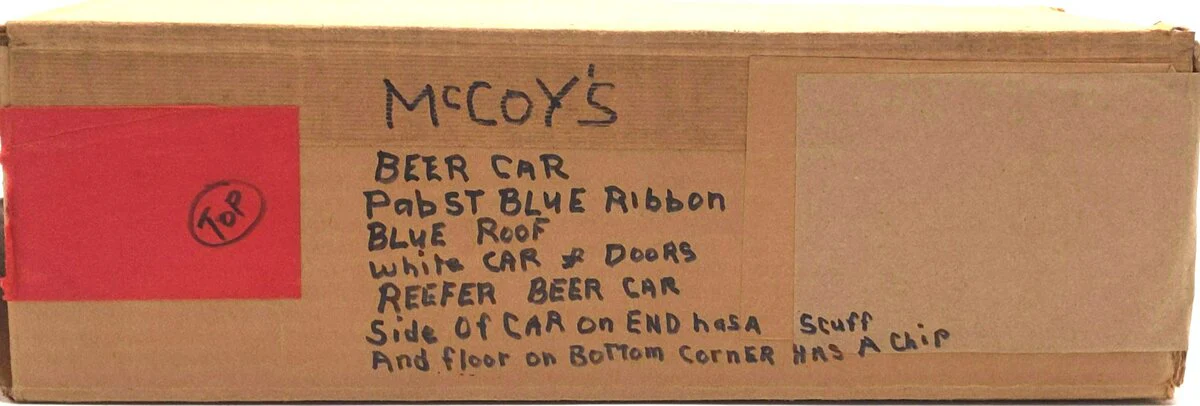 McCOY'S
TOP
BEER CAR
PabST BLUE Ribbon
BLUE ROOF
white CAR & DOORS
REEFER BEER CAR
Side Of CAR on END hasA Scuff
And floor on BoTTom CorNER HAS A Chip